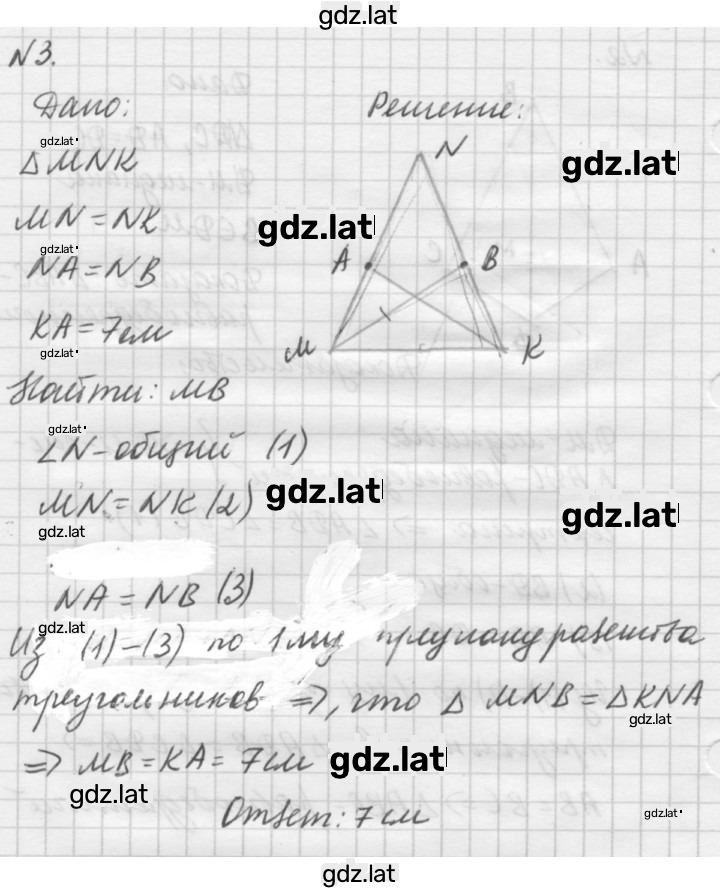 gdz.lat
N3.
Дано:
Решение:
gdz.lat
△MNK
gdz.lat
N
MN = NK
gdz.lat
gdz.lat
A
B
NA = NB
KA = 7 см
M
K
gdz.lat
Найти: MB
gdz.lat
∠N - общий (1)
MN = NK (2)
gdz.lat
gdz.lat
gdz.lat
NA = NB (3)
gdz.lat
Из (1)-(3) по 1му признаку равенства
треугольников ⇒, что △ MNB = △KNA
gdz.lat
⇒ MB = KA = 7 см
gdz.lat
gdz.lat
Ответ: 7 см
gdz.lat
gdz.lat